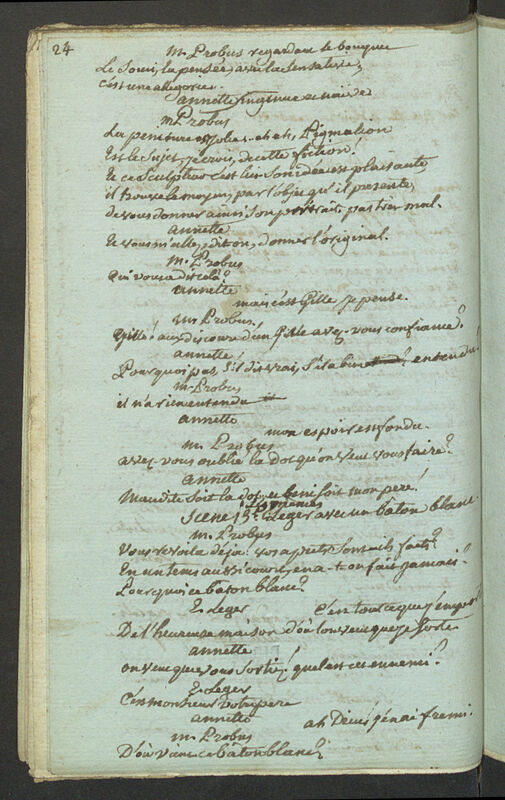 24
M. Probus regardant le bouquet
Le Souci, la pensée, avec la Sensitive,
c'est une allegorie.
annette ingenue et naive
M Probus
La peinture est jolie. ah ah, Pigmalion
Est le Sujet, je crois, de cette fiction!
Et ce Sculpteur c'est lui. Son idée est plaisante,
il trouve le moyen, par l'objet qu'il presente,
de vous donner ainsi Son portrait, pas trop mal.
annette
Et vous m'allez, dit on, donner l'original.
M. Probus
Qui vous a dit cela?
annette
mais c'est Gille, je pense.
M Probus.
Gille! aux discours d'un Gille avez-vous confiance?
annette
Pourquoi pas, S'il dit vrai, S'il a bien entendu!
M. Probus
il n'a rien entendu
annette
mon espoir est fondu.
M. Probus
avez-vous oublié la Dot qu'on veut vous faire?
annette
Maudite Soit la dot, et beni Soit mon pere!
Scene 13e. Les memes E. Leger avec un bâton blanc
M. Probus
Vous revoila déja! vos aprets Sont-ils faits?
En un tems aussi court, en a-t-on fait jamais?
Pourquoi ce baton blanc?
E. Leger
C'est tout ce que j'emporte
De l'heureuse maison d'où l'on veut que je Sorte
annette
on veut que vous Sortiez! quel est cet ennemi?
E. Leger
C'est monsieur votre pere
annette
ah Dieu! j'en ai fremi.
M. Probus
D'où vient ce bâton blanc?